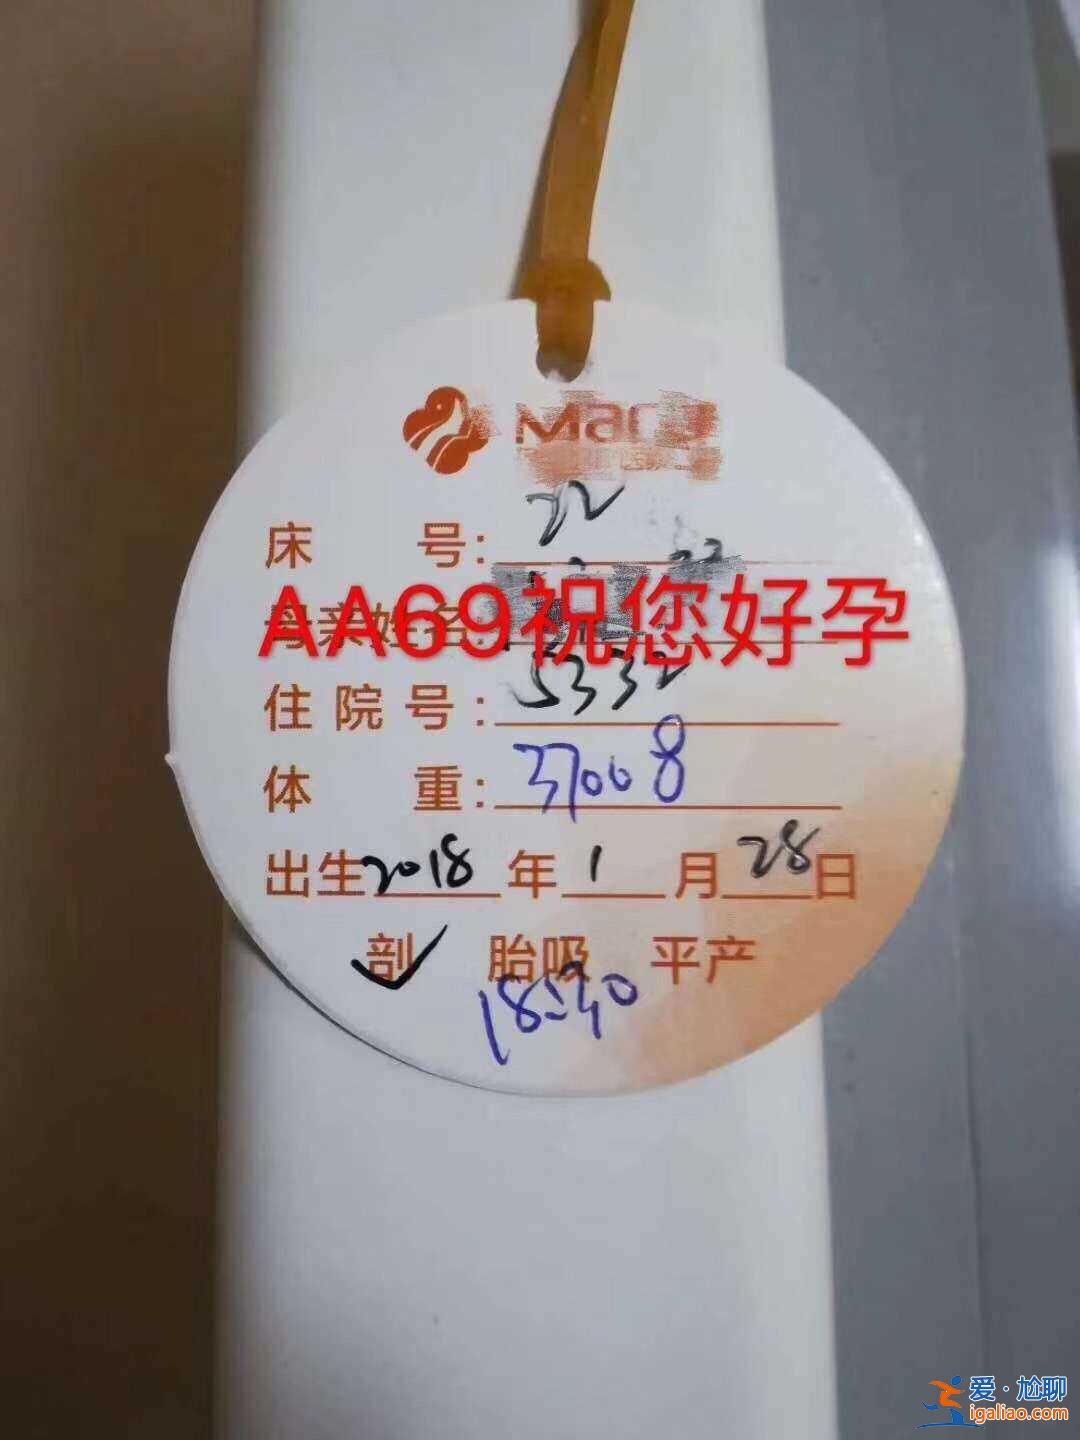 床 号: 22
AA69祝您好孕
住院号: 5332
体 重: 3700g
出生2018年1月28日
剖 胎吸 平产
爱·尬聊
igaliao.com